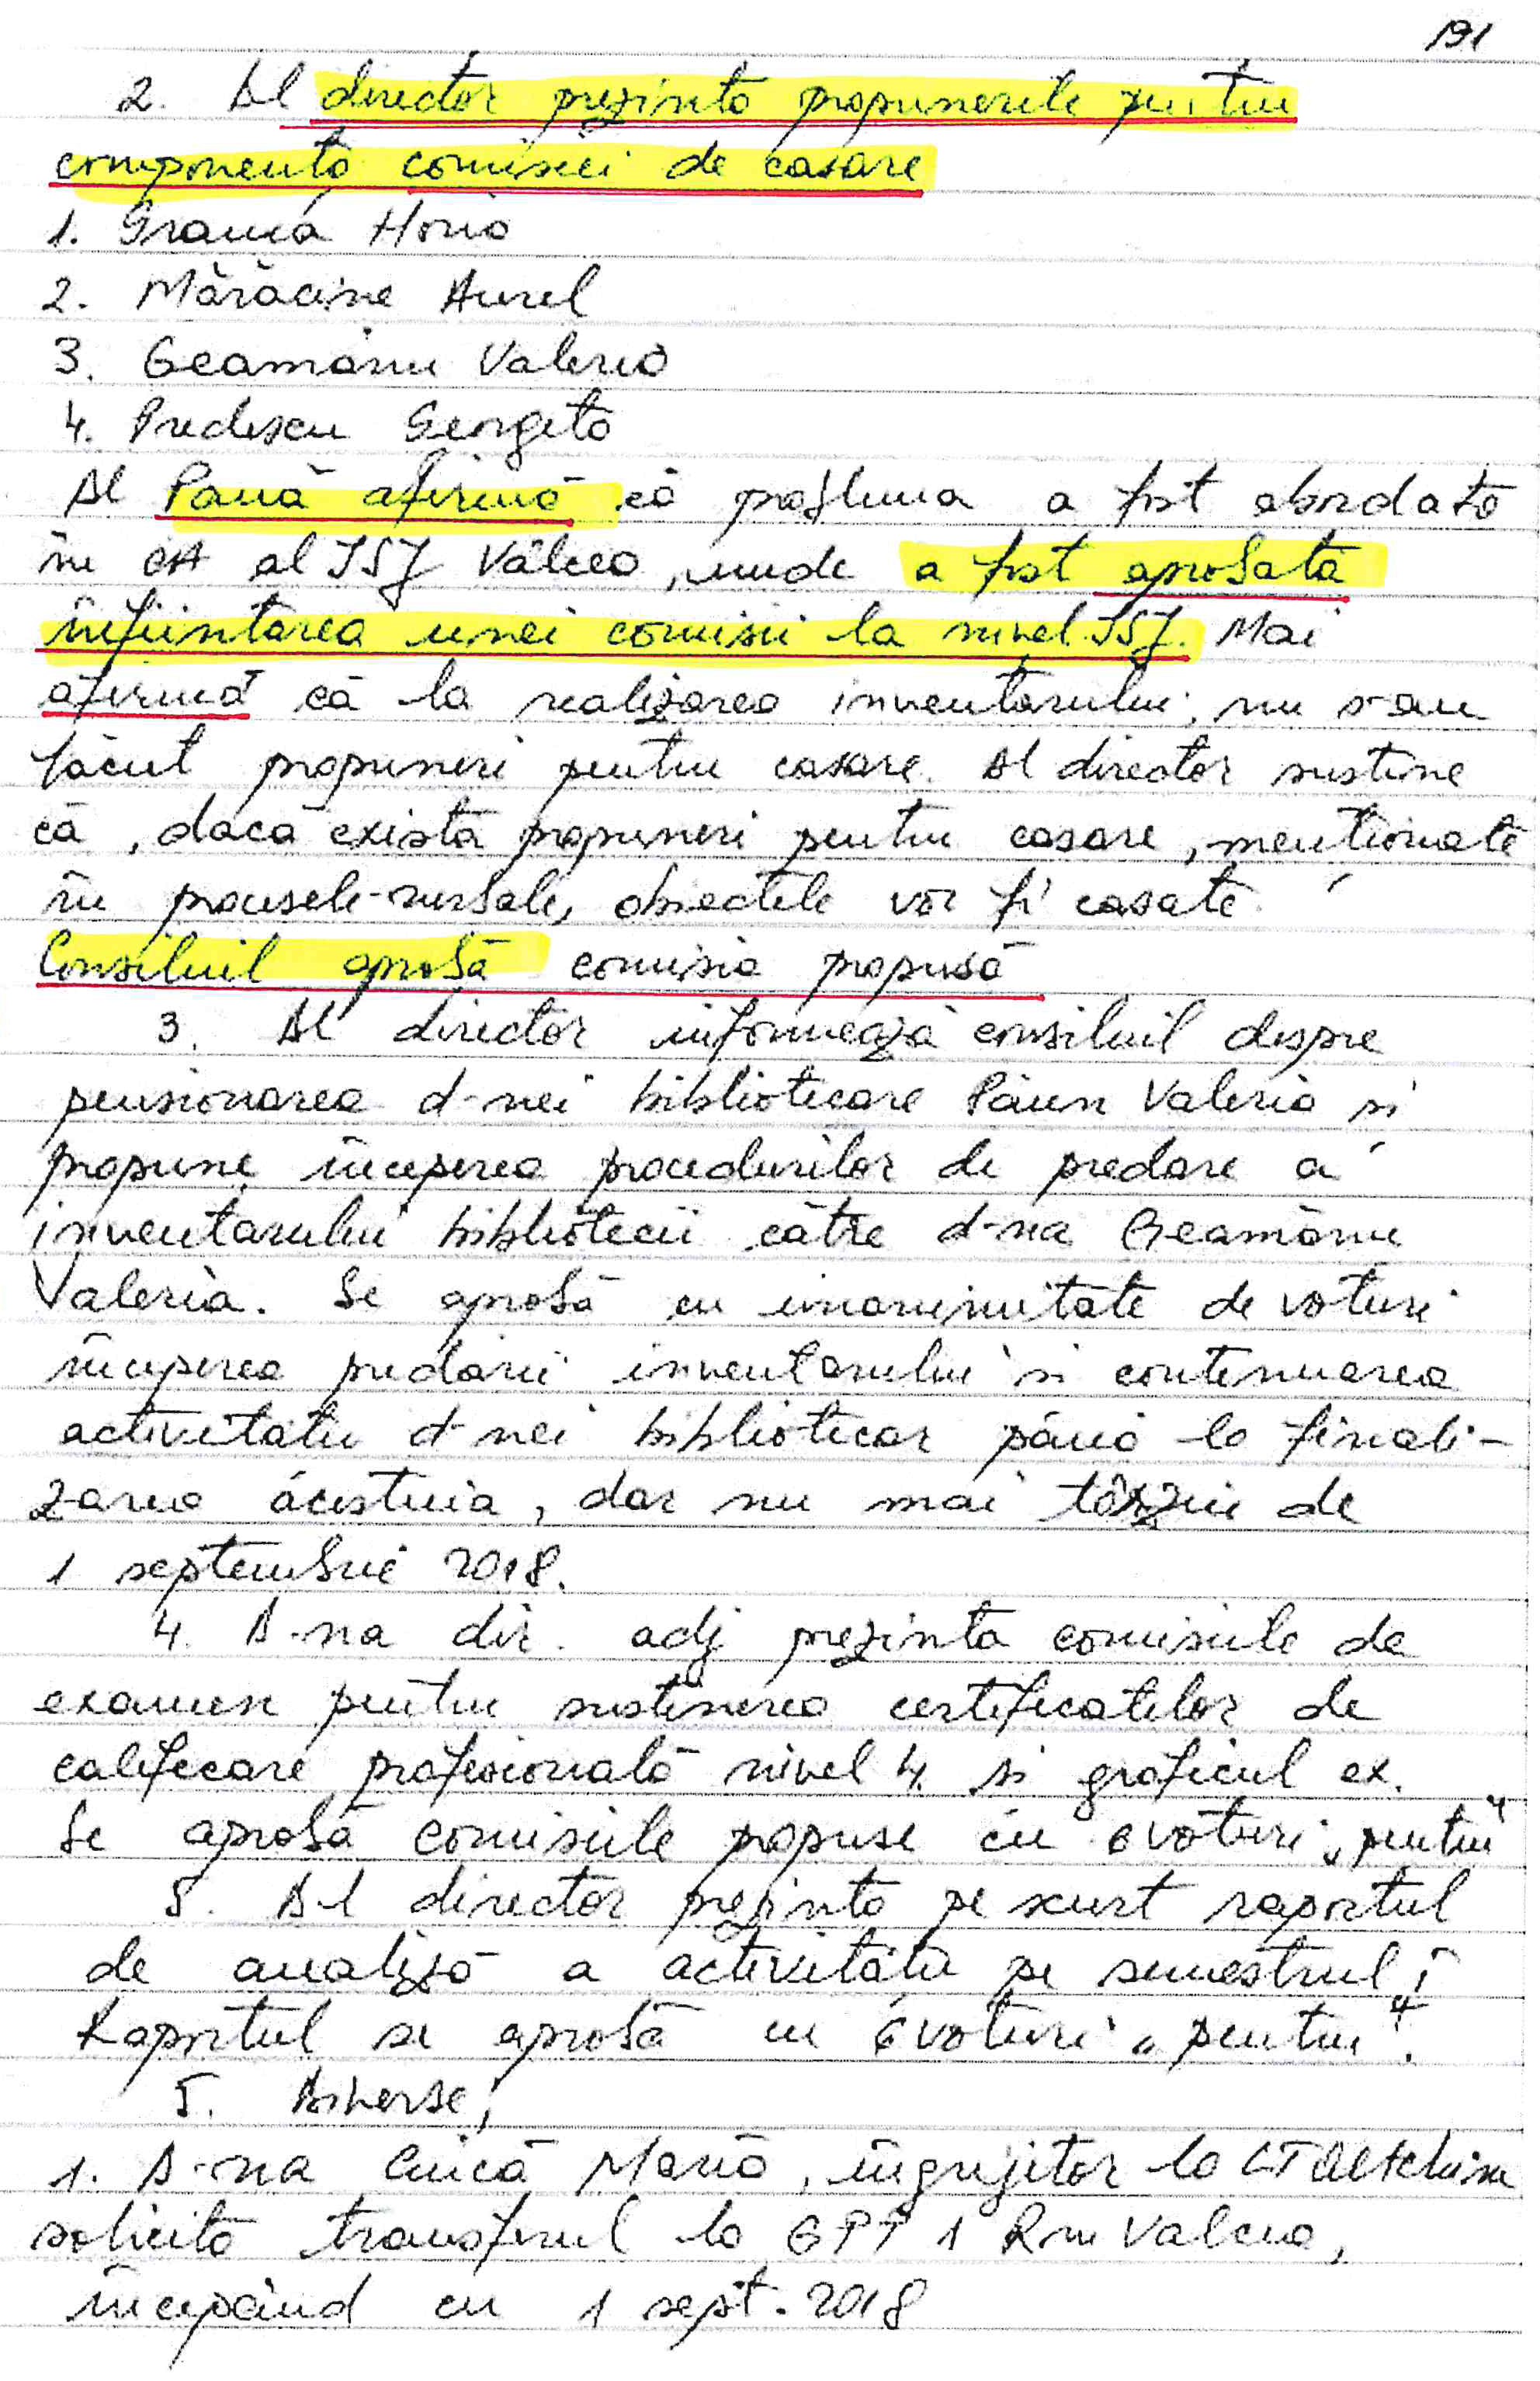 191
2. Dl director prezintă propunerile pentru
componența comisiei de casare
1. Horia
2. Mărăcine Aurel
3. Geamănu Valeria
4. Predescu Georgeta
Dl Pană afirmă că problema a fost abordată
în CA al ISJ Vâlcea, unde a fost aprobată
înființarea unei comisii la nivel ISJ. Mai
afirmă că la realizarea inventarului, nu s-au
făcut propuneri pentru casare. Dl director susține
că, dacă există propuneri pentru casare, menționate
în procesele-verbale, obiectele vor fi casate.
Consiliul aprobă comisia propusă
3. Dl director informează consiliul despre
pensionarea d-nei bibliotecare Păun Valeria și
propune începerea procedurilor de predare a
inventarului bibliotecii către d-na Geamănu
Valeria. Se aprobă cu unanimitate de voturi
începerea predării inventarului și continuarea
activității d-nei bibliotecar până la finali-
zarea acestuia, dar nu mai târziu de
1 septembrie 2018.
4. D-na dir. adj prezintă comisiile de
examen pentru susținerea certificatelor de
calificare profesională nivel 4. și graficul ex.
Se aprobă comisiile propuse cu 6 voturi „pentru"
5. D-l director prezintă pe scurt raportul
de analiză a activității pe semestrul I
Raportul se aprobă cu 6 voturi „pentru".
5. Diverse,
1. D-na Maria, îngrijitor la LT Oltchim
solicită transferul la GPP 1 Rm Valcea,
începând cu 1 sept. 2018